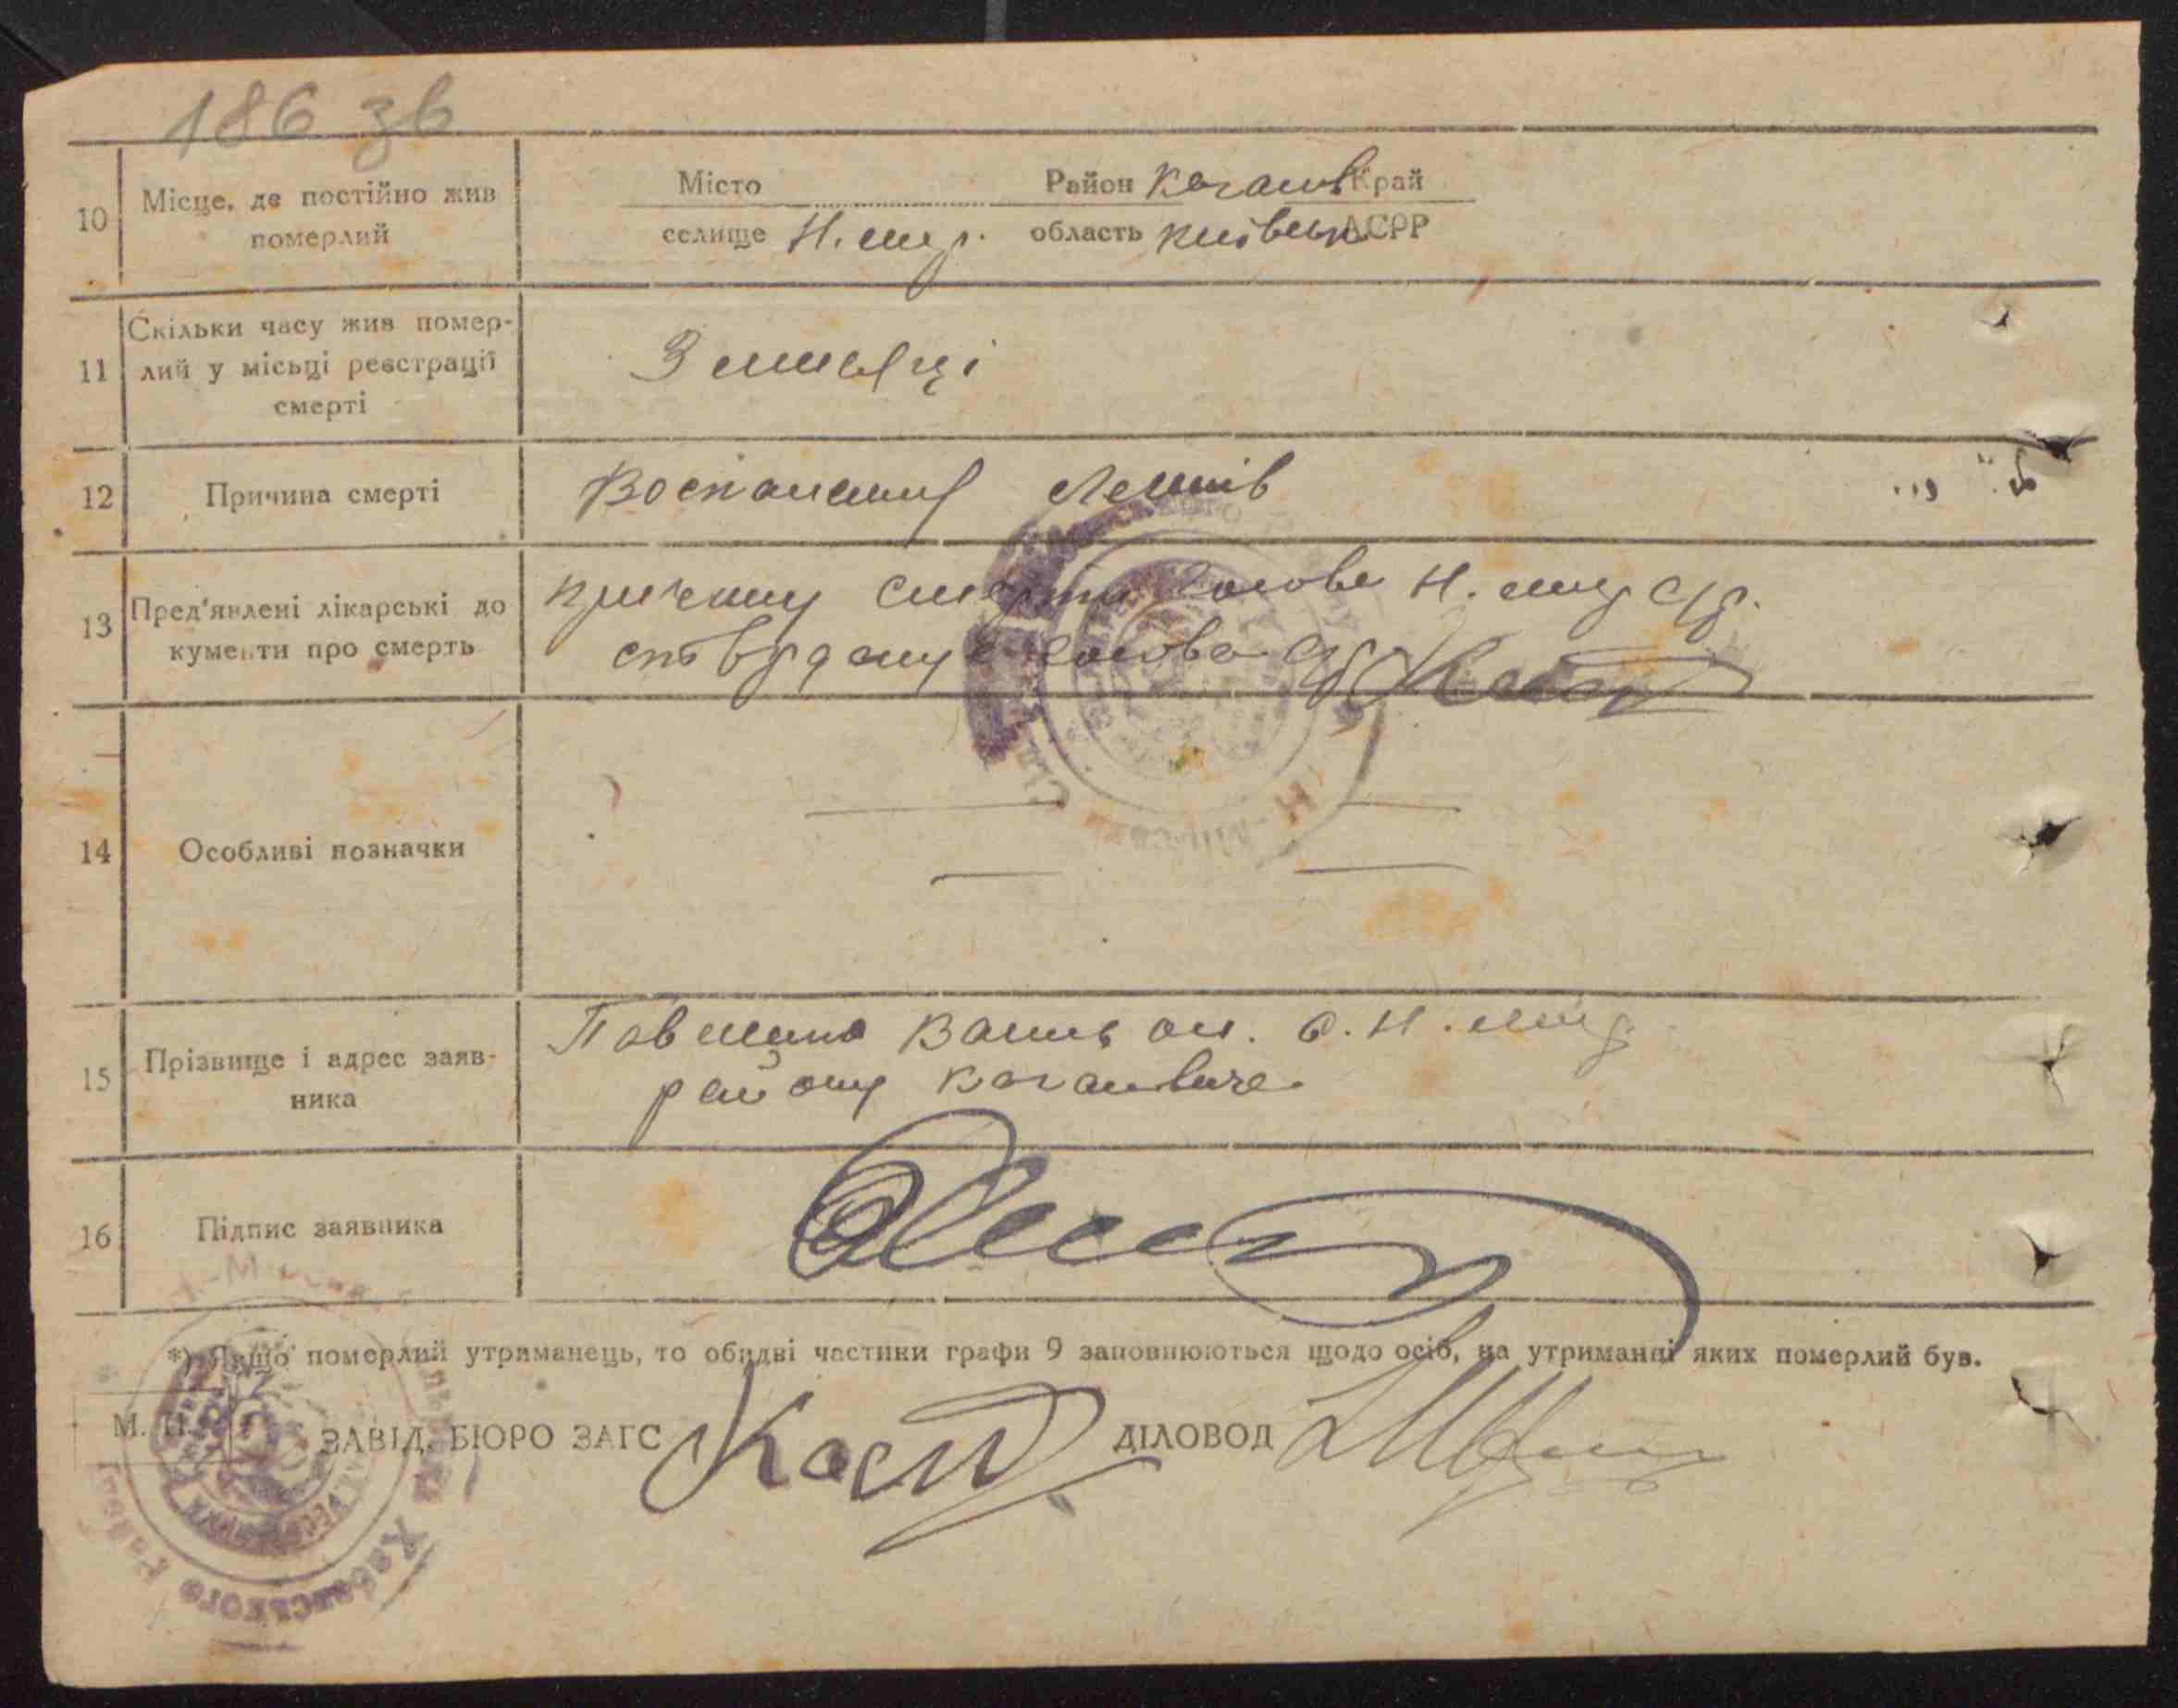 186 зв
10 Місце, де постійно жив померлий
Місто Район Каганов Край
селище Н. мир. область Київськ АСРР
11 Скільки часу жив помер-
лий у місьці реєстрації
смерті
3 місяці
12 Причина смерті Воспаление Легнів
13 Пред'явлені лікарські до
кументи про смерть
причину смерти голова Н. мир с/р.
голова с/р
14 Особливі позначки
15 Прізвище і адрес заяв-
ника
с. Н. мир
району Кагановича
16 Підпис заявника
*) Якщо померлий утриманець, то обидві частини графи 9 заповнюються щодо осіб, на утриманні яких померлий був.
М. П. ЗАВІД. БЮРО ЗАГС ДІЛОВОД
Хабенського Район